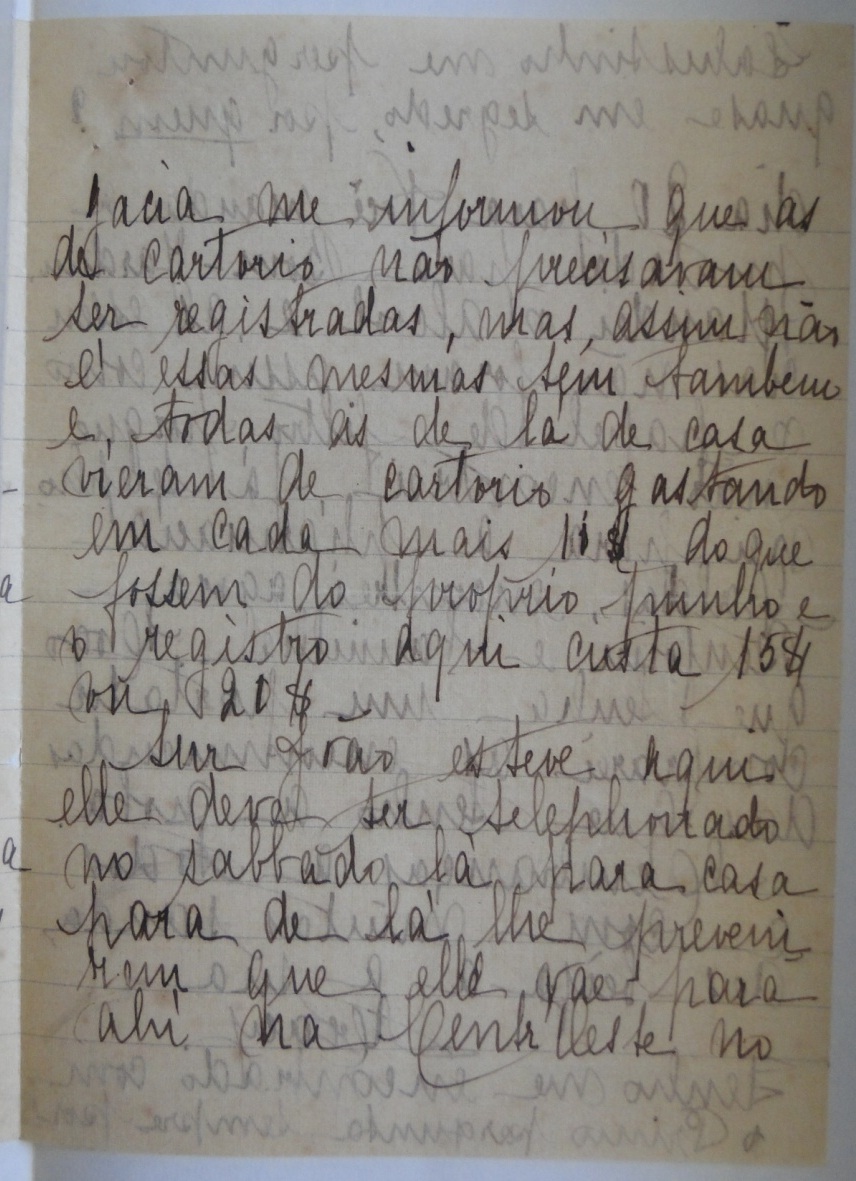 Jacia me informou que as
de cartorio não precisavam
ser registradas, mas, assim não
é essas mesmas têm tambem
e, todas as de lá de casa
vieram de cartorio gastando
em cada mais 11$ do que
fossem do proprio punho e
o registro aqui custa 15$
ou 20$
Snr João esteve aqui.
elle deve ser telephonado
no sabbado lá para casa
para de lá lhe preveni
rem que elle vae para
ahi na no